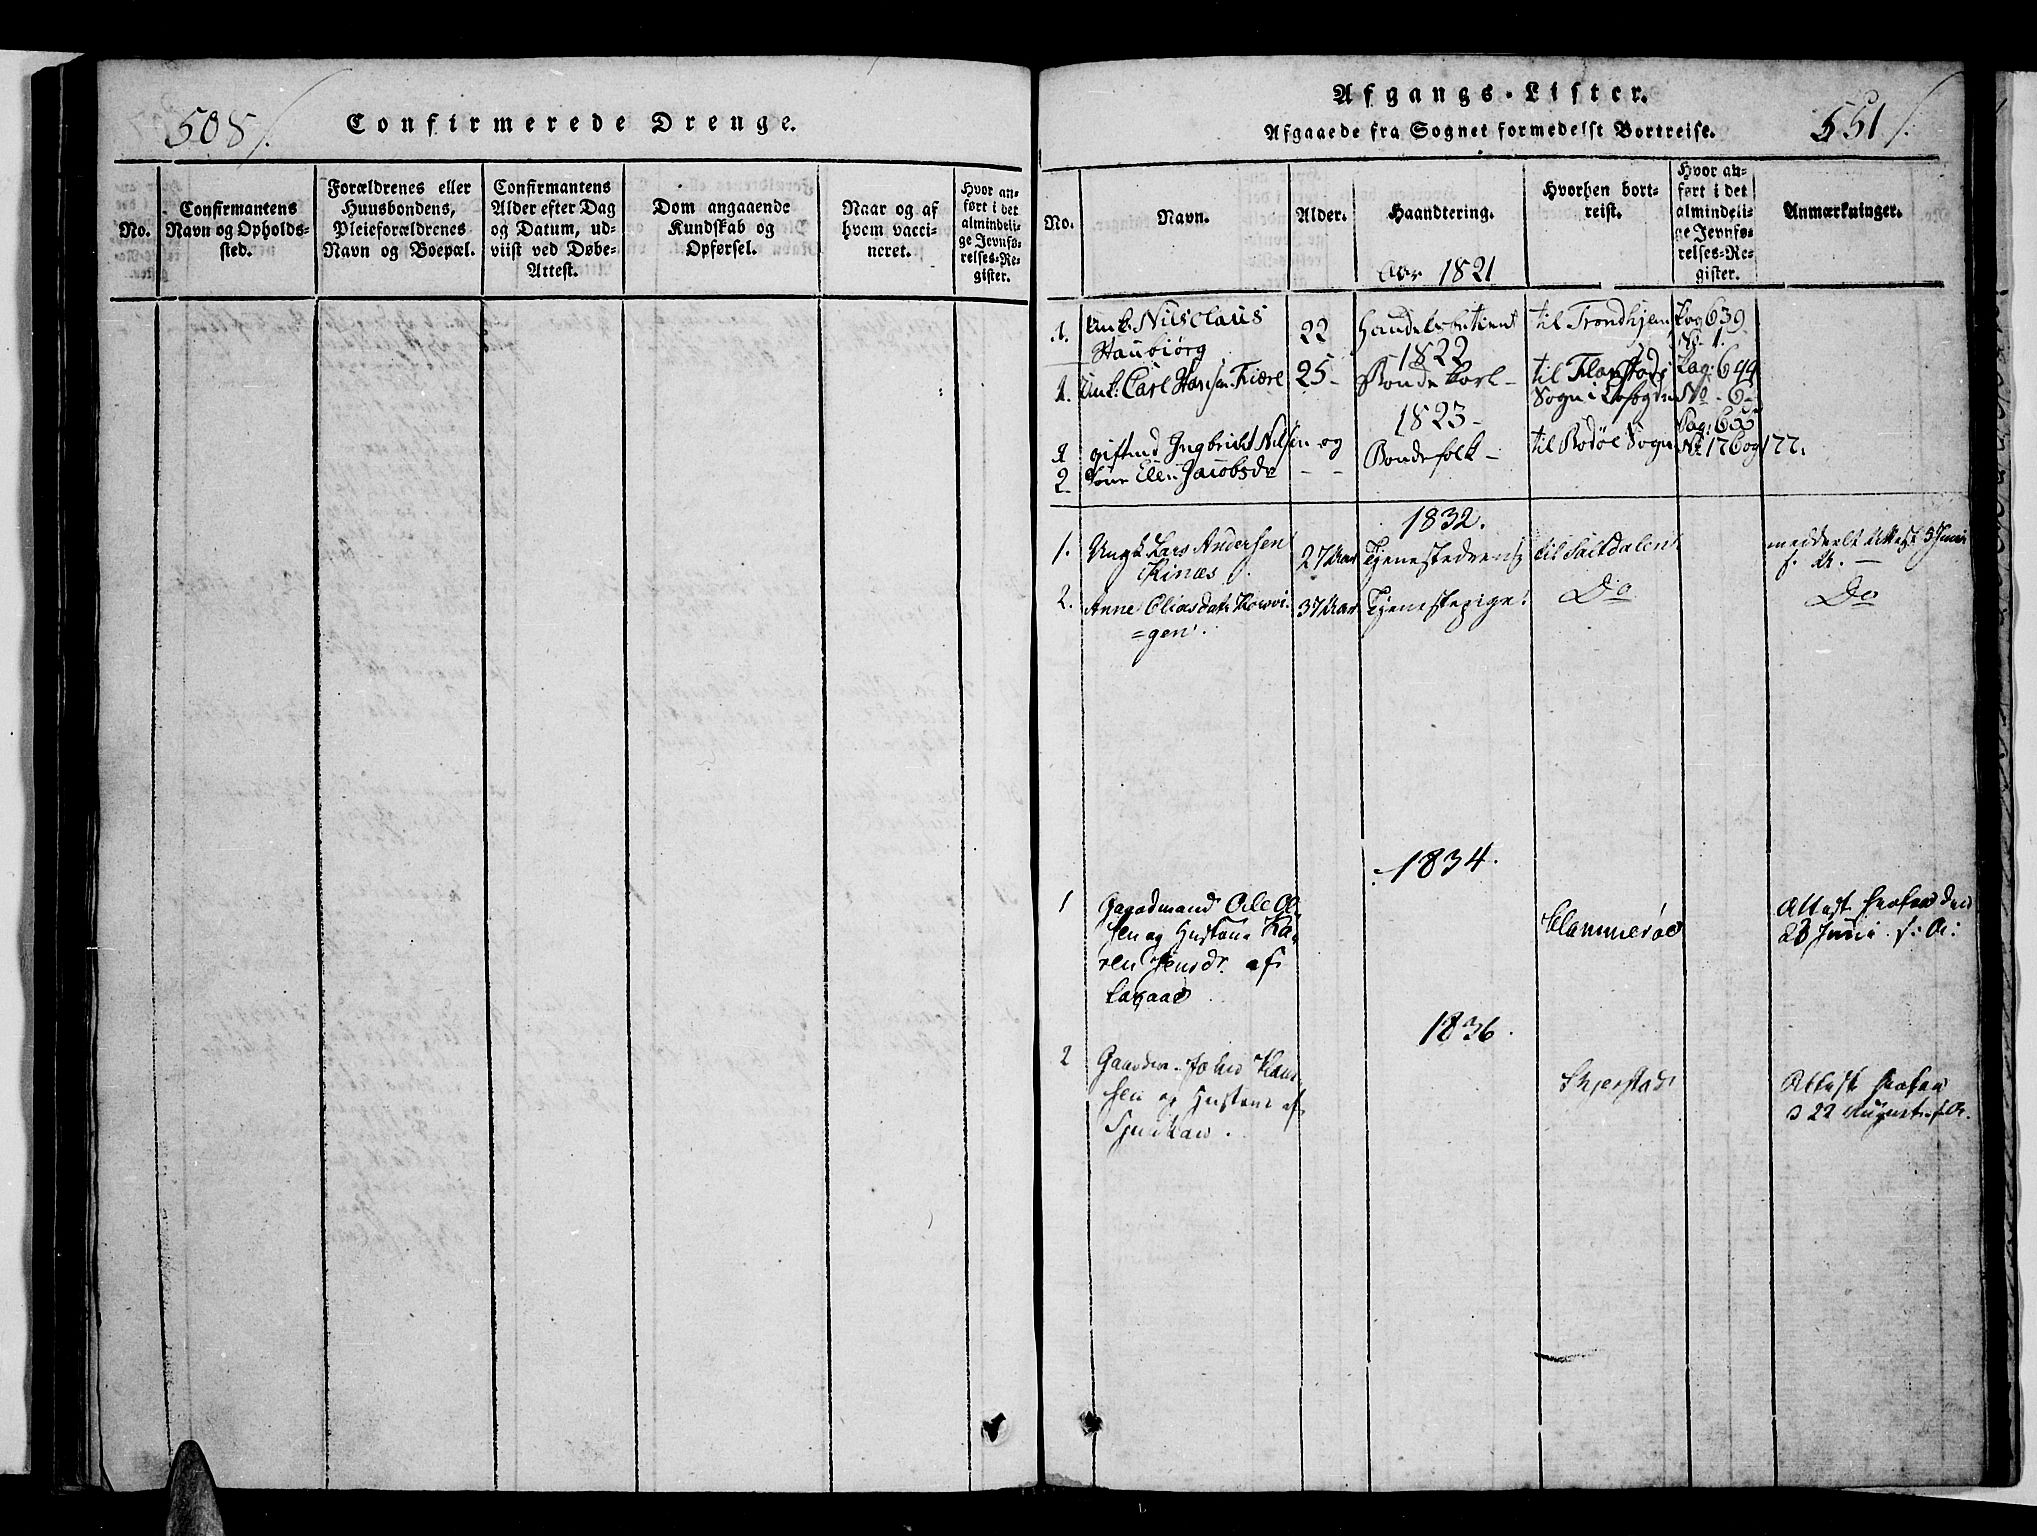 508/.
Confirmerede Drenge.
No.
Confirmantens
Navn og Opholds-
sted.
Forældrenes eller
Huusbondens,
Pleieforældrenes
Navn og Boepæl.
Confirmantens
Alder efter Dag
og Datum, ud-
viist ved Døbe-
Attest.
Dom angaaende
Kundskab og
Opførsel.
Naar og af
hvem vacci-
neret.
Hvor an-
ført i det
almindeli-
ge Jevnfø-
relses-Re-
gister.
Afgangs-Lister.
Afgaaede fra Sognet formedelst Bortreise.
551/.
No.
Navn.
Alder.
Haandtering.
Hvorhen bort-
reist.
Hvor an-
ført i det
almindeli-
ge Jevnfø-
relses-Re-
gister.
Anmærkninger.
Aar 1821
1. Unk. Nils Claus 22 Handelsbetient til Trondhjem Pag 639
Staubiörg No. 1.
1822
1. Unk: Carl Hansen 25- Bonde Karl- til Sogn i Pag: 644
No - 6-
1823-
1 gift md Ingbricht Nilsen og Bondefolk- til Bodøe Sogn Pag: 655
No 176 og 177.
2 Kone Elen Jacobsdr - -
1832.
1. Ungk. Lars Andersen 27 Aar Tjenestedreng til Saltdalen meddeelt Attest 5 Junii
f. A. -
2. Anne Eliasdatr 37 Aar Tjenestepige. Do Do
=gen.
1834.
1 Gaardmand Ole Ol-
sen og Hustrue Ka-
ren Jensdr. af
Hammerøe
Attest herfra den
23 Junii f: A:
1836.
2
sen og Hustrue af
Skjerstad
Attest herfra
d 22 August f. A.